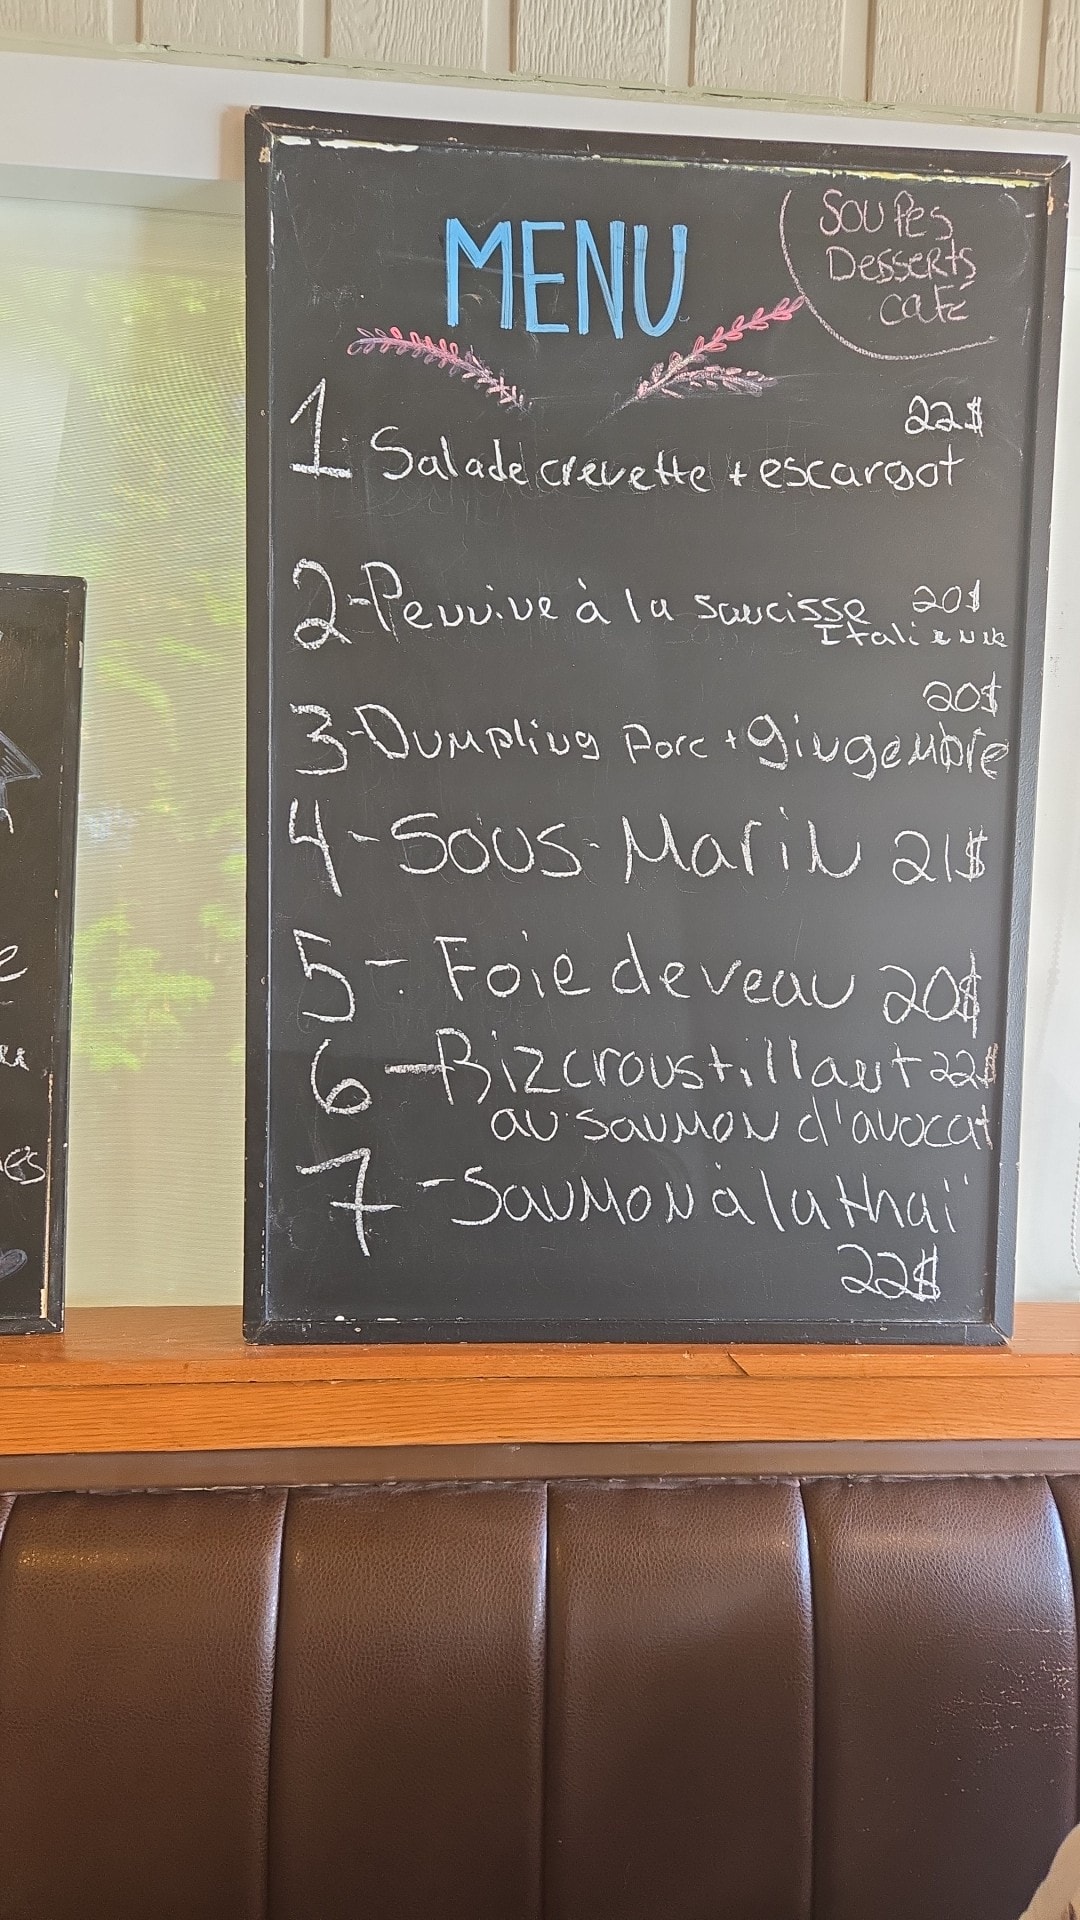 MENU
SOUPes
Desserts
café
22$
1 Salade crevette + escargot
2-Pennine à la saucisse 20$
Italienne
20$
3-Dumpling porc + gingembre
4-Sous-Marin 21$
5-Foie de veau 20$
6-Riz croustillant 22$
au saumon d'avocat
7-Saumon à la thaï
22$